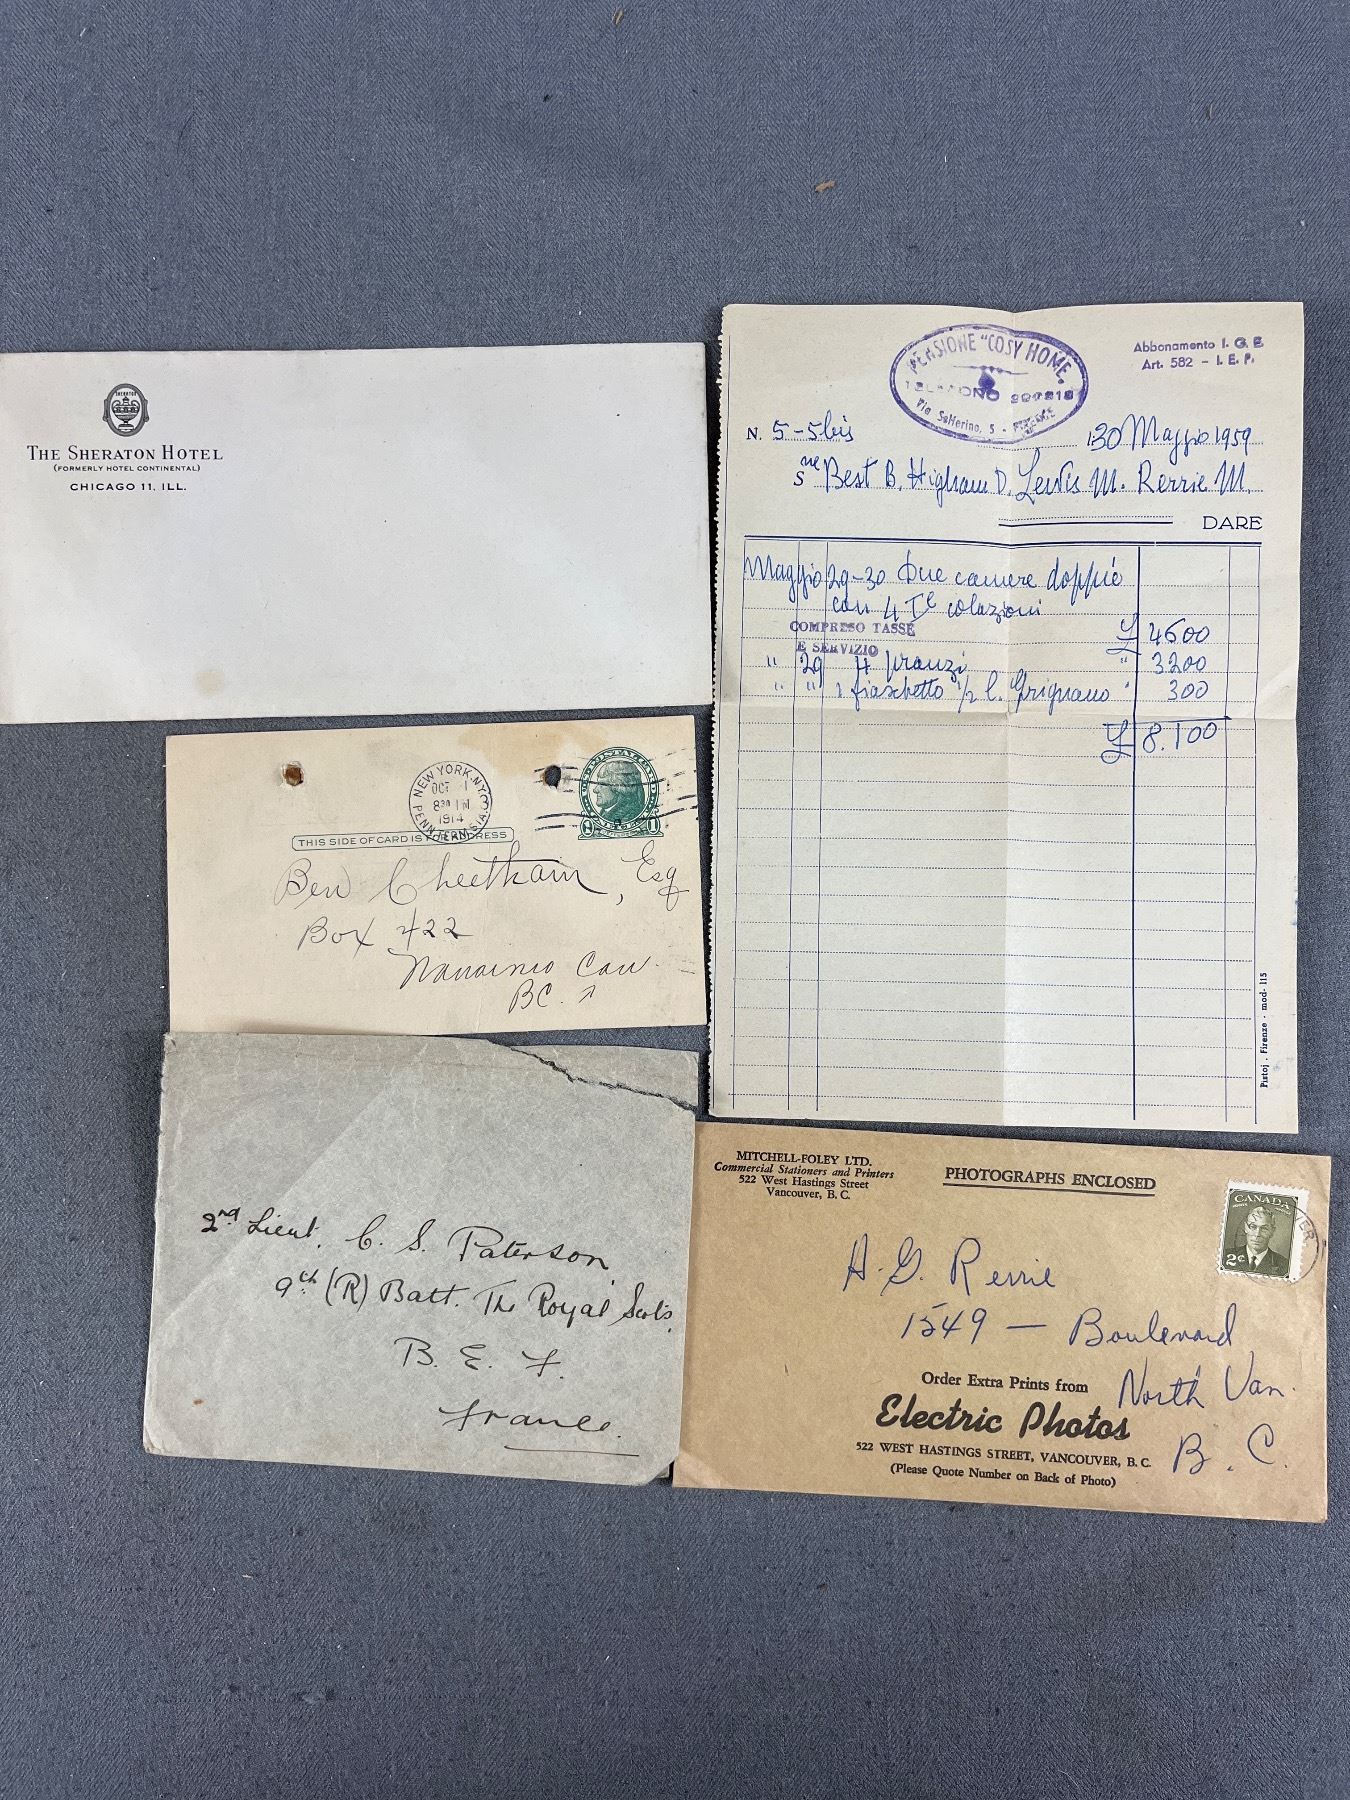 SHERATON
THE SHERATON HOTEL
(FORMERLY HOTEL CONTINENTAL)
CHICAGO 11, ILL.
PENSIONE "COSY HOME"
TELEFONO
Via Solferino, 5 - FIRENZE
Abbonamento I. G. E
Art. 582 - I. E. P.
N. 5-5bis
30 Maggio 1959
S.ne Best B. Higham D. Lewis M. Rerrie M.
DARE
Maggio 29-30 Due camere doppie
con 4 Ie colazioni
COMPRESO TASSE
£ 4600
E SERVIZIO
" 29 4 pranzi " 3200
" " 1 fiaschetto 1/2 l. Grignano " 300
£ 8.100
Pistoj . Firenze . mod. 115
NEW YORK, N.Y.
OCT 1
830 PM
1914
PENN. TERM. STA.
1
THIS SIDE OF CARD IS FOR ADDRESS
Ben Cheetham, Esq
Box 422
Nanaimo Can.
BC.
2nd Lieut. C. S. Paterson
9th (R) Batt. The Royal Scots
B. E. F.
France.
MITCHELL-FOLEY LTD.
Commercial Stationers and Printers
522 West Hastings Street
Vancouver, B. C.
PHOTOGRAPHS ENCLOSED
CANADA
2¢
VER.
A. G. Rerrie
1549 — Boulevard
North Van.
B. C.
Order Extra Prints from
Electric Photos
522 WEST HASTINGS STREET, VANCOUVER, B. C.
(Please Quote Number on Back of Photo)